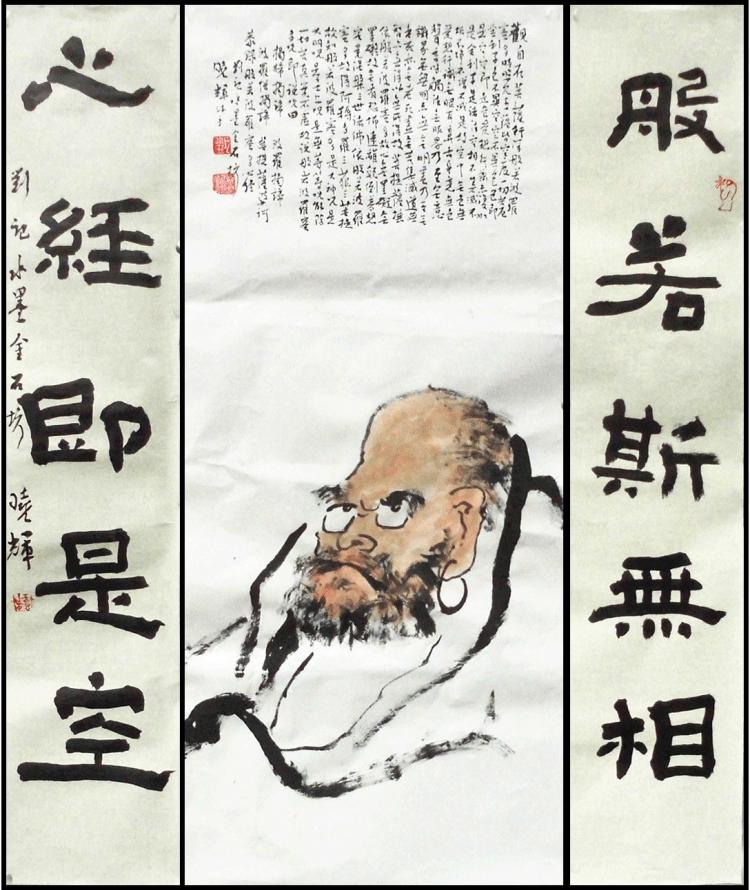 般若斯無相
觀自在菩薩行深般若波羅
蜜多時照見五蘊皆空度一切苦厄
舍利子色不異空空不異色色即
是空空即是色受想行識亦復如
是舍利子是諸法空相不生不滅不
垢不淨不增不減是故空中無色無
受想行識無眼耳鼻舌身意無色
聲香味觸法無眼界乃至無意
識界無無明亦無無明盡乃至無
老死亦無老死盡無苦集滅道無
智亦無得以無所得故菩提薩埵
依般若波羅蜜多故心無罣礙無
罣礙故無有恐怖遠離顛倒夢想
究竟涅槃三世諸佛依般若波羅
蜜多故得阿耨多羅三藐三菩提
故知般若波羅蜜多是大神咒是
大明咒是無上咒是無等等咒能除
一切苦真實不虛故說般若波羅蜜
多咒即說咒曰
揭諦揭諦 波羅揭諦
波羅僧揭諦 菩提薩婆訶
恭錄般若波羅蜜多心經
劉記水墨金石坊
曉輝沐手
心經即是空
劉記水墨金石坊 曉輝